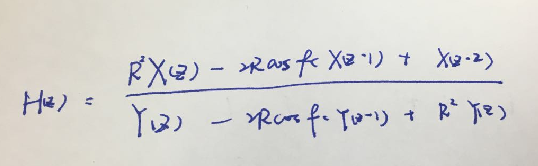 H(z) = \frac{R^2 X(z) - 2R cos fc X(z-1) + X(z-2)}{Y(z) - 2R cos fc Y(z-1) + R^2 Y(z)}